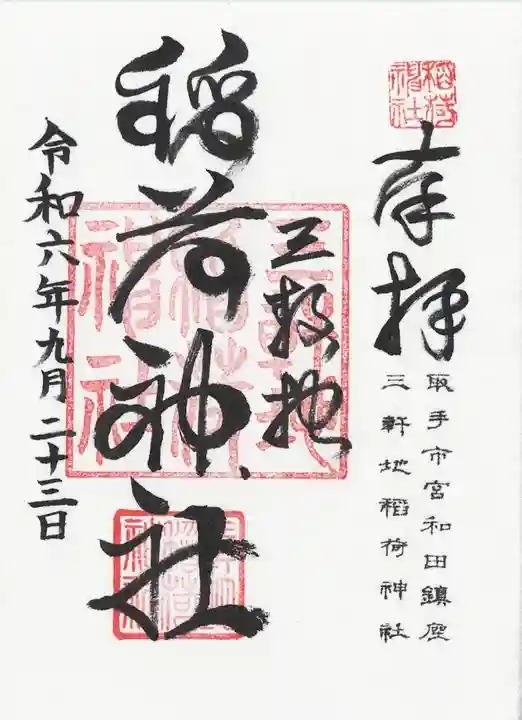 稲荷神社
奉拝
取手市宮和田鎮座
三軒地稲荷神社
三軒地
稲荷神社
令和六年九月二十三日
三軒地稲荷神社